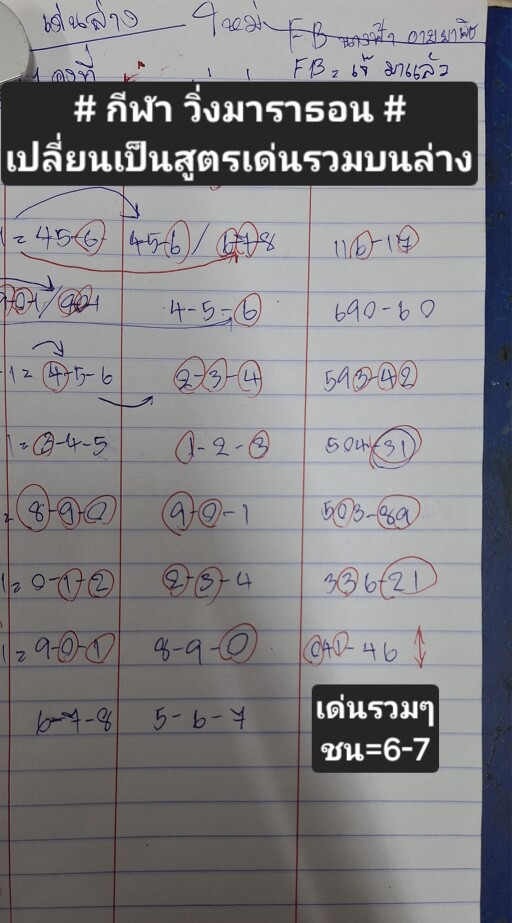 เด่นล่าง
FB
FB = เจ้ มาแล้ว
# กีฬา วิ่งมาราธอน #
เปลี่ยนเป็นสูตรเด่นรวมบนล่าง
1 = 45-6 45-6 / 6-7-8 116-17
4-5-6 690-60
1 = 4-5-6 2-3-4 593-42
1 = 3-4-5 1-2-3 504-31
= 8-9-0 9-0-1 503-89
1 = 0-1-2 2-3-4 336-21
1 = 9-0-1 8-9-0 041-46
6-7-8 5-6-7
เด่นรวมๆ
ชน=6-7